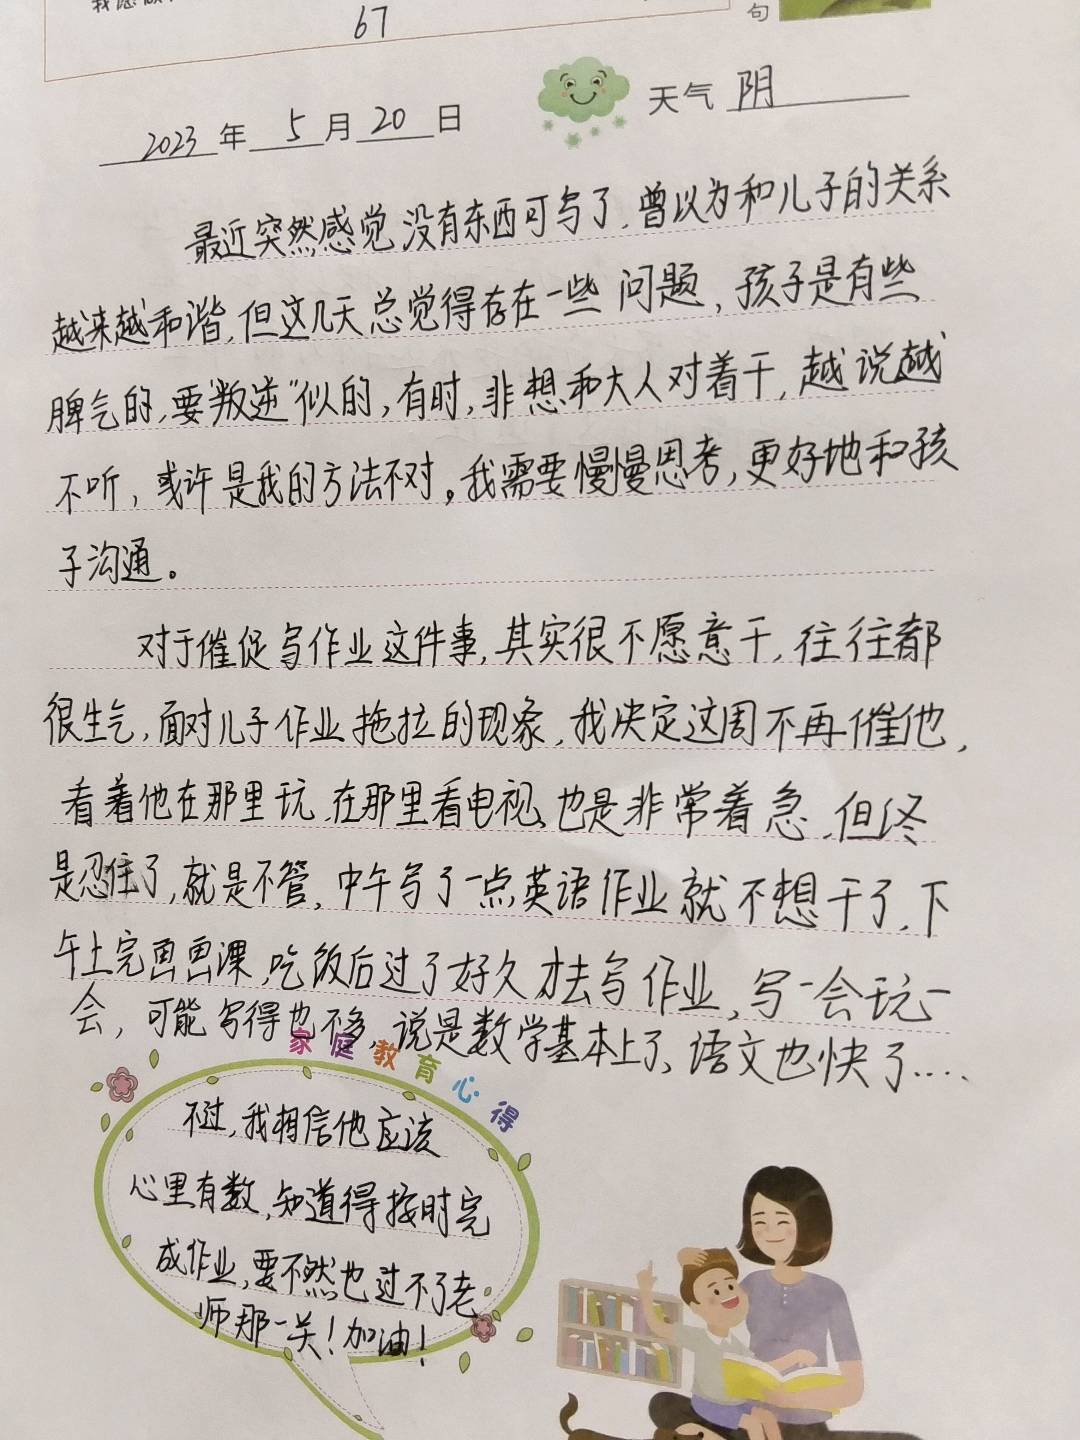 67
句
2023年5月20日
天气 阴
最近突然感觉没有东西可写了,曾以为和儿子的关系
越来越和谐,但这几天总觉得存在一些问题,孩子是有些
脾气的,要"叛逆"似的,有时,非想和大人对着干,越说越
不听,或许是我的方法不对。我需要慢慢思考,更好地和孩
子沟通。
对于催促写作业这件事,其实很不愿意干,往往都
很生气,面对儿子作业拖拉的现象,我决定这周不再催他,
看着他在那里玩、在那里看电视、也是非常着急,但终
是忍住了,就是不管,中午写了一点英语作业就不想干了,下
午上完画画课,吃饭后过了好久才去写作业,写一会玩一
会,可能写得也不多,说是数学基本上了、语文也快了....
家庭教育心得
不过,我相信他应该
心里有数,知道得按时完
成作业,要不然也过不了老
师那一关!加油!